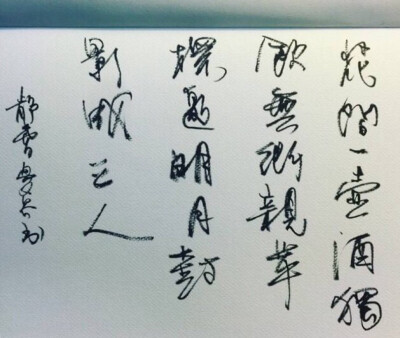 花間一壺酒獨
酌無相親舉
杯邀明月對
影成三人
靜雪書